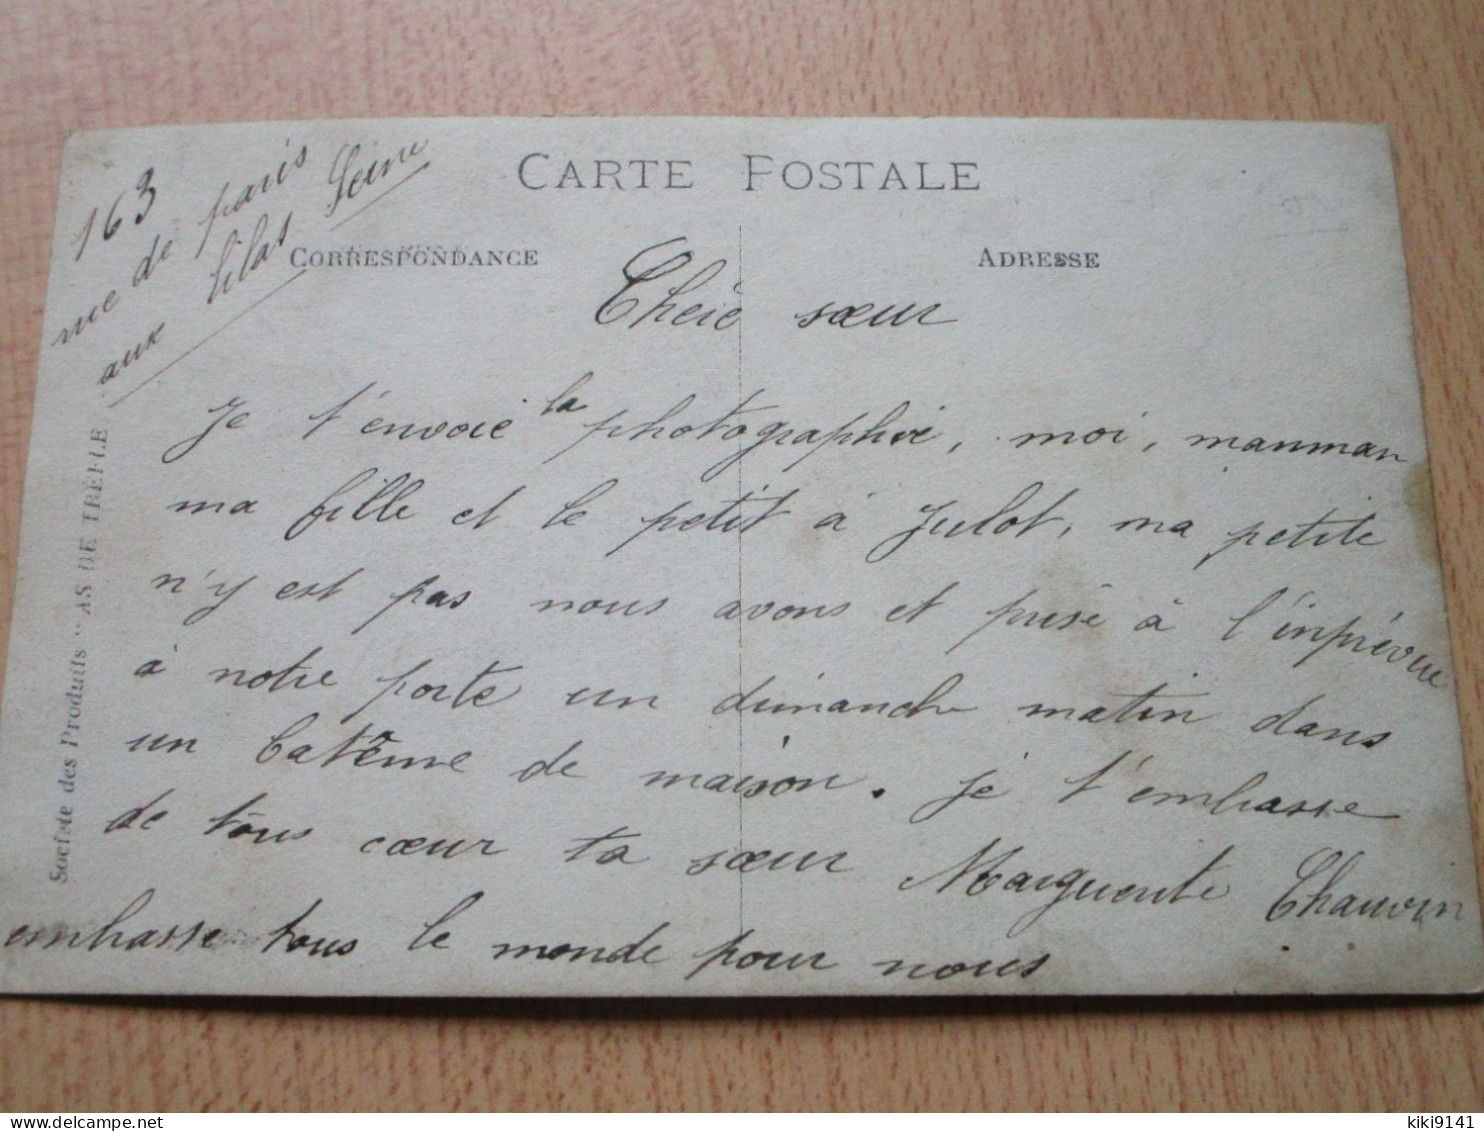 CARTE POSTALE
CORRESPONDANCE
ADRESSE
163
rue de paris
aux lilas Seine
Société des Produits "AS DE TRÈFLE
Cheie sœur
Je t'envoie la photographie, moi, manman
ma fille et le petit à Julot, ma petite
n'y est pas nous avons et prise à l'inprévue
à notre porte un dimanche matin dans
un batême de maison. je t'embasse
de tous cœur ta sœur Marguerite Chauvin
embasse tous le monde pour nous
kiki9141